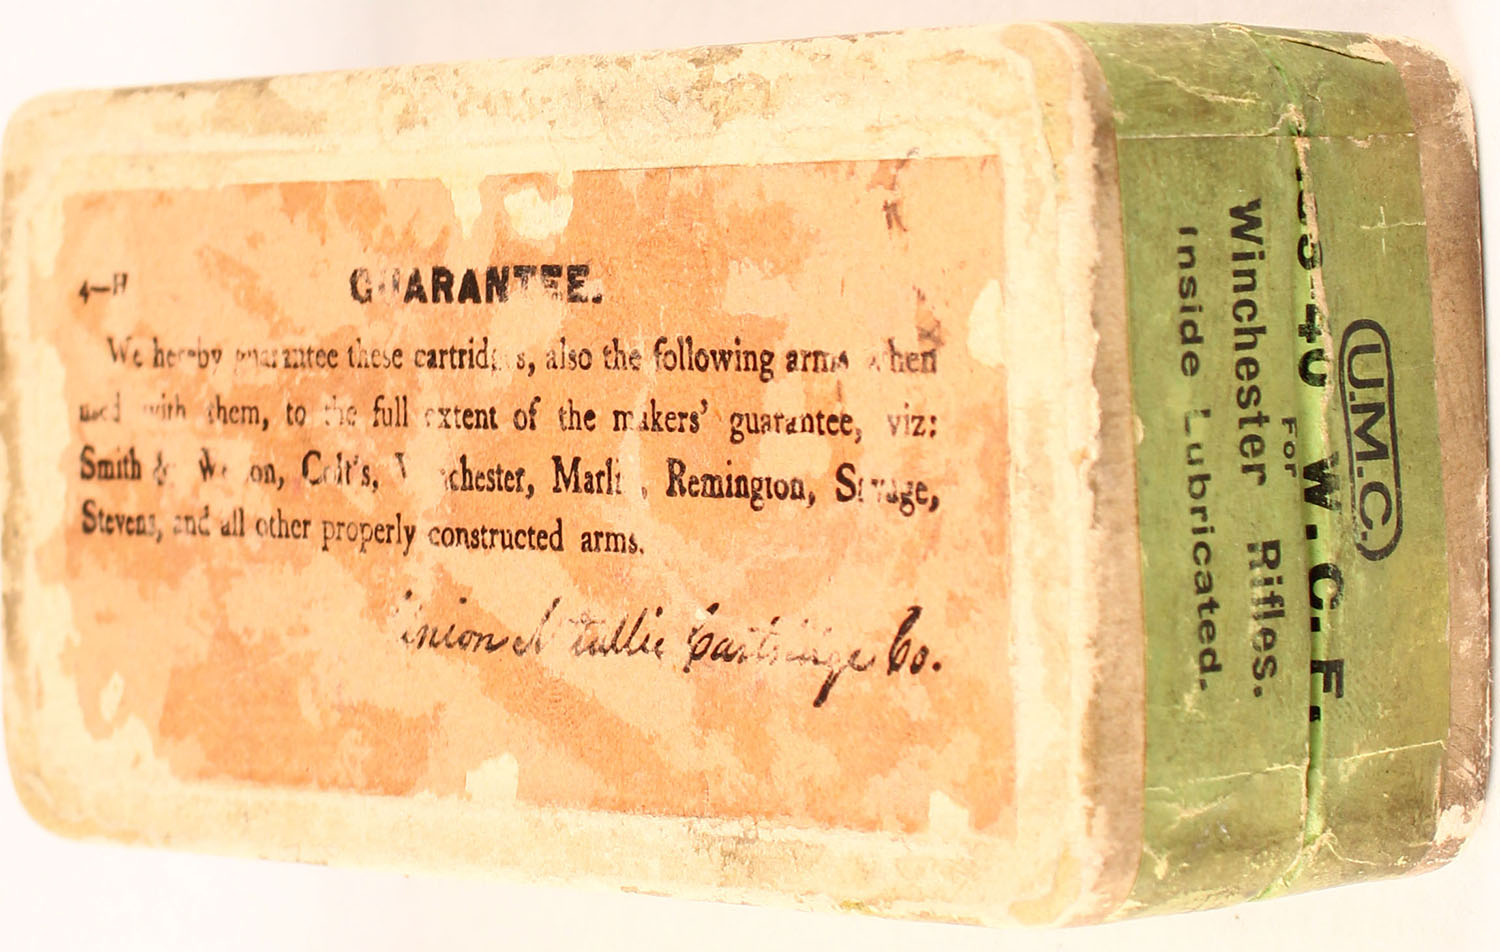 4—H
GUARANTEE.
We hereby guarantee these cartridges, also the following arms when
used with them, to the full extent of the makers' guarantee, viz:
Smith & Wesson, Colt's, Winchester, Marlin, Remington, Savage,
Stevens, and all other properly constructed arms.
Union Metallic Cartridge Co.
U.M.C.
40 W. C. F.
For
Winchester Rifles.
Inside Lubricated.